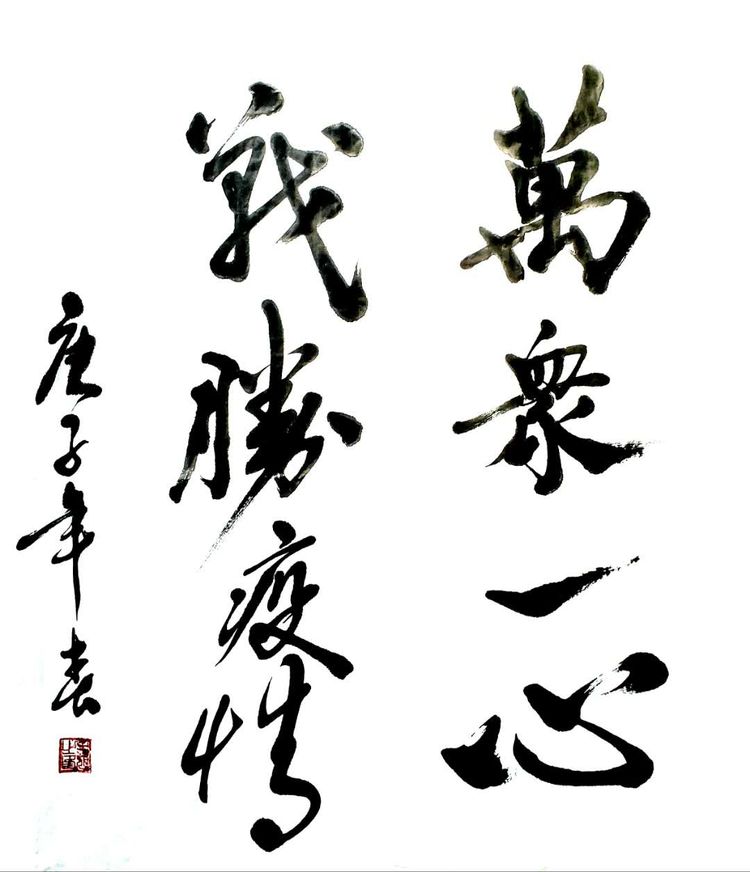 萬衆一心
戰勝疫情
庚子年春